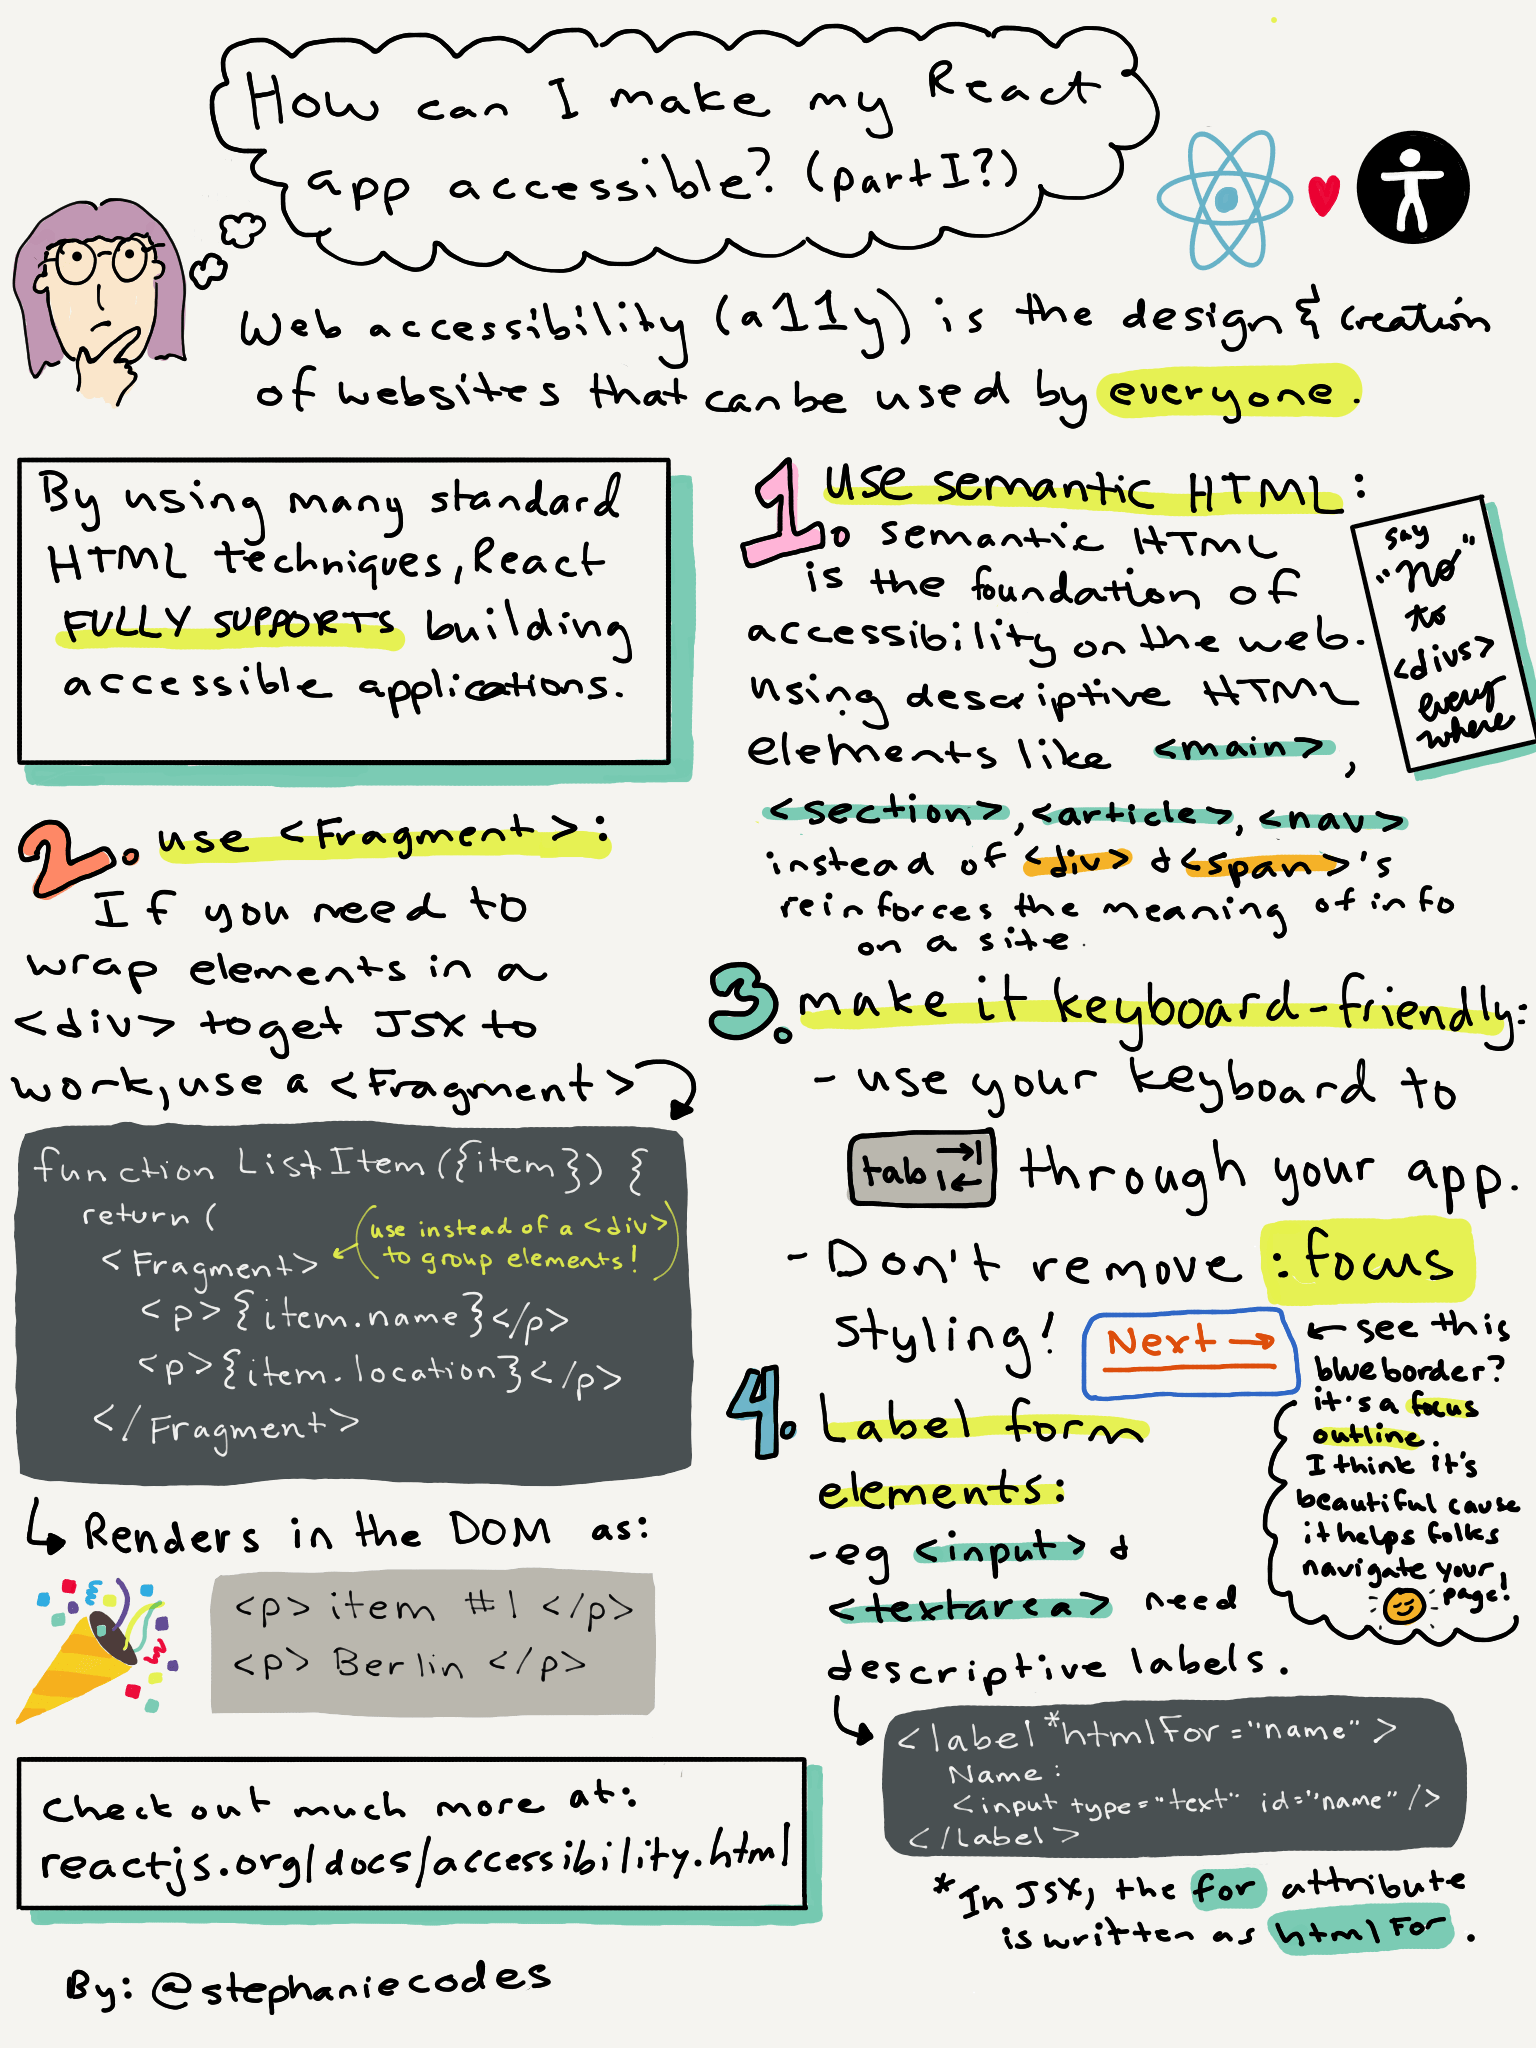 How can I make my React
app accessible? (part I?)
Web accessibility (a11y) is the design & creation
of websites that can be used by everyone.
By using many standard
HTML techniques, React
FULLY SUPPORTS building
accessible applications.
1. use semantic HTML:
semantic HTML
is the foundation of
accessibility on the web.
using descriptive HTML
elements like <main>,
<section>, <article>, <nav>
instead of <div> & <span>'s
reinforces the meaning of info
on a site.
say
"no"
to
<divs>
every
where
2. use <Fragment>:
If you need to
wrap elements in a
<div> to get JSX to
work, use a <Fragment>
function ListItem ({item}) {
return (
<Fragment>
(use instead of a <div>
to group elements!)
<p>{item.name}</p>
<p>{item.location}</p>
</Fragment>
Renders in the DOM as:
<p> item #1 </p>
<p> Berlin </p>
3. make it keyboard-friendly:
- use your keyboard to
tab through your app.
- Don't remove :focus
styling!
Next →
← see this
blue border?
it's a focus
outline.
I think it's
beautiful cause
it helps folks
navigate your
page!
4. Label form
elements:
- eg <input> &
<textarea> need
descriptive labels.
<label *htmlFor="name">
Name:
<input type="text" id="name"/>
</label>
*In JSX, the for attribute
is written as htmlFor.
Check out much more at:
reactjs.org/docs/accessibility.html
By: @stephaniecodes